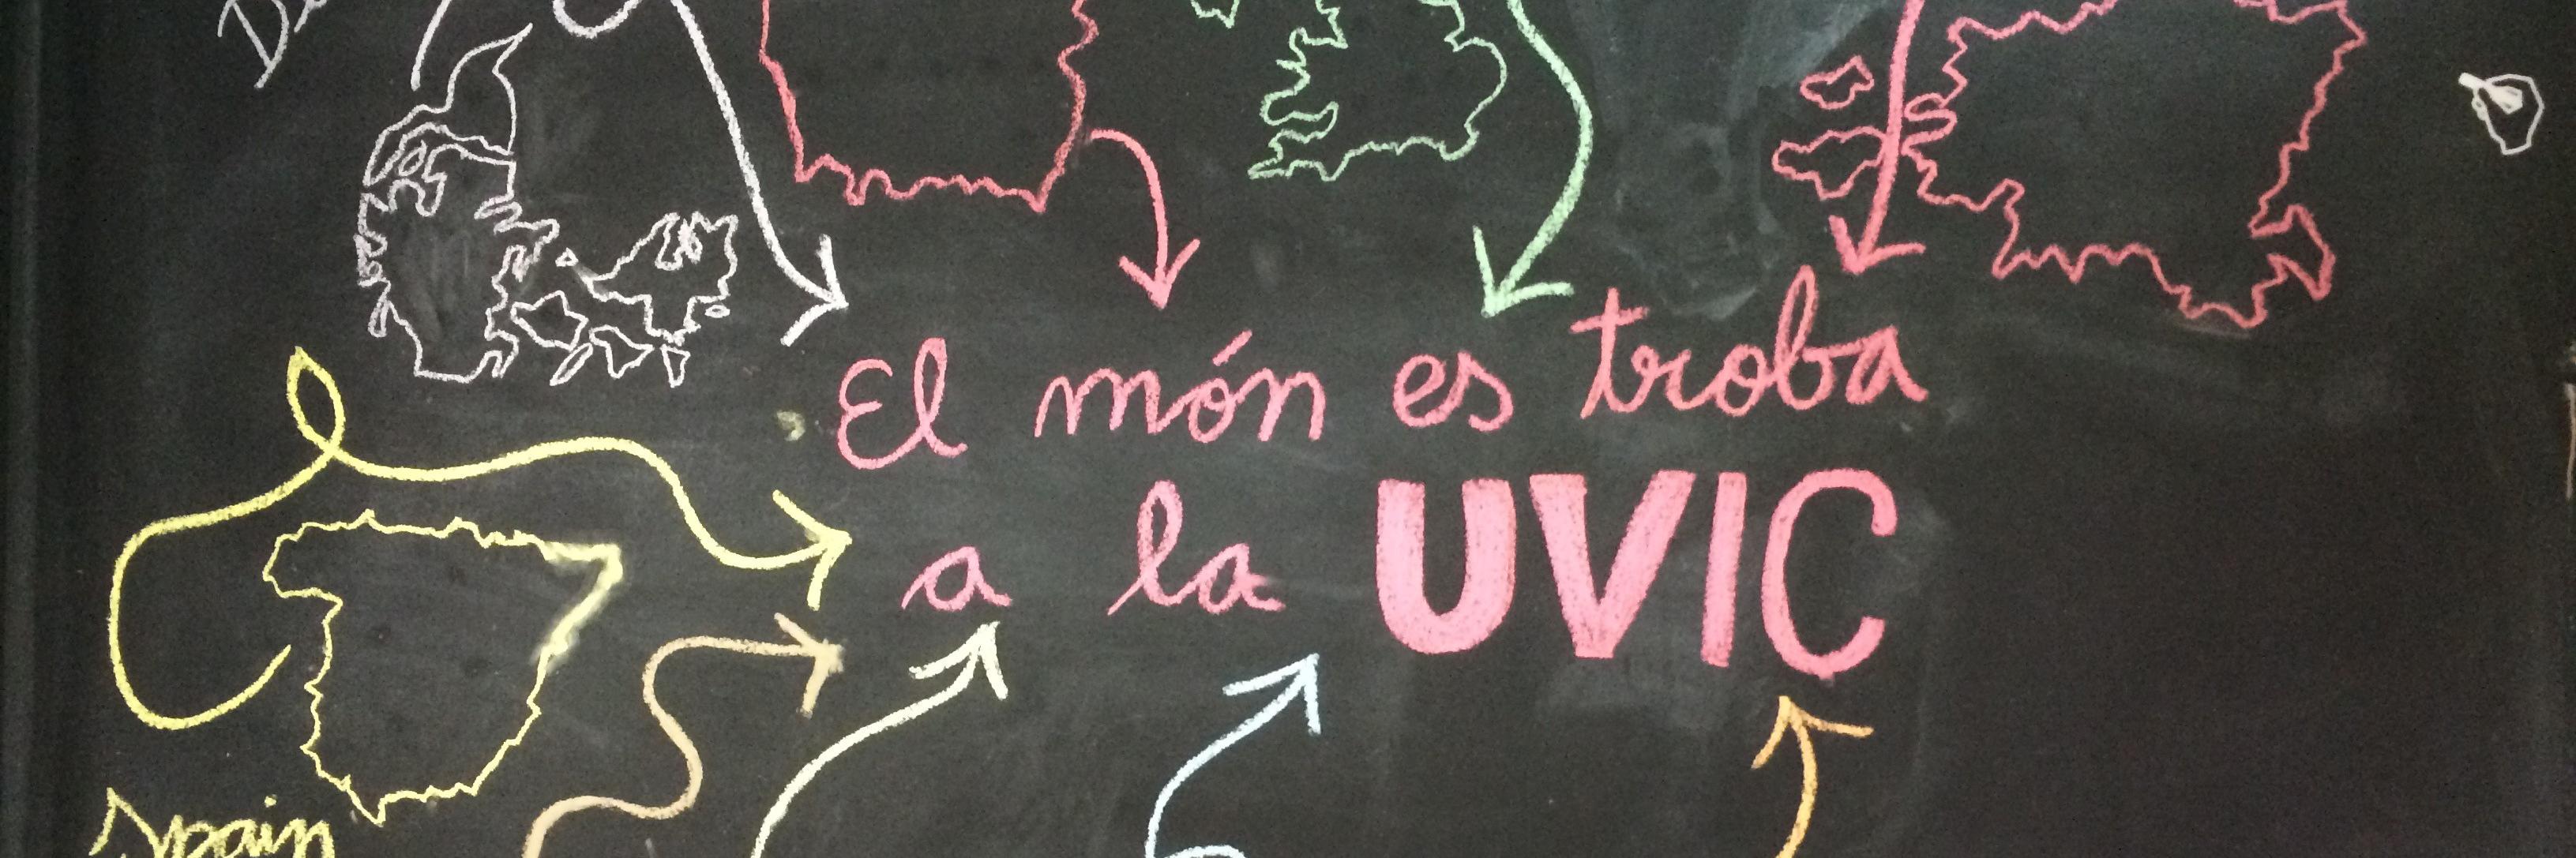 El món es troba
a la UVIC
Spain